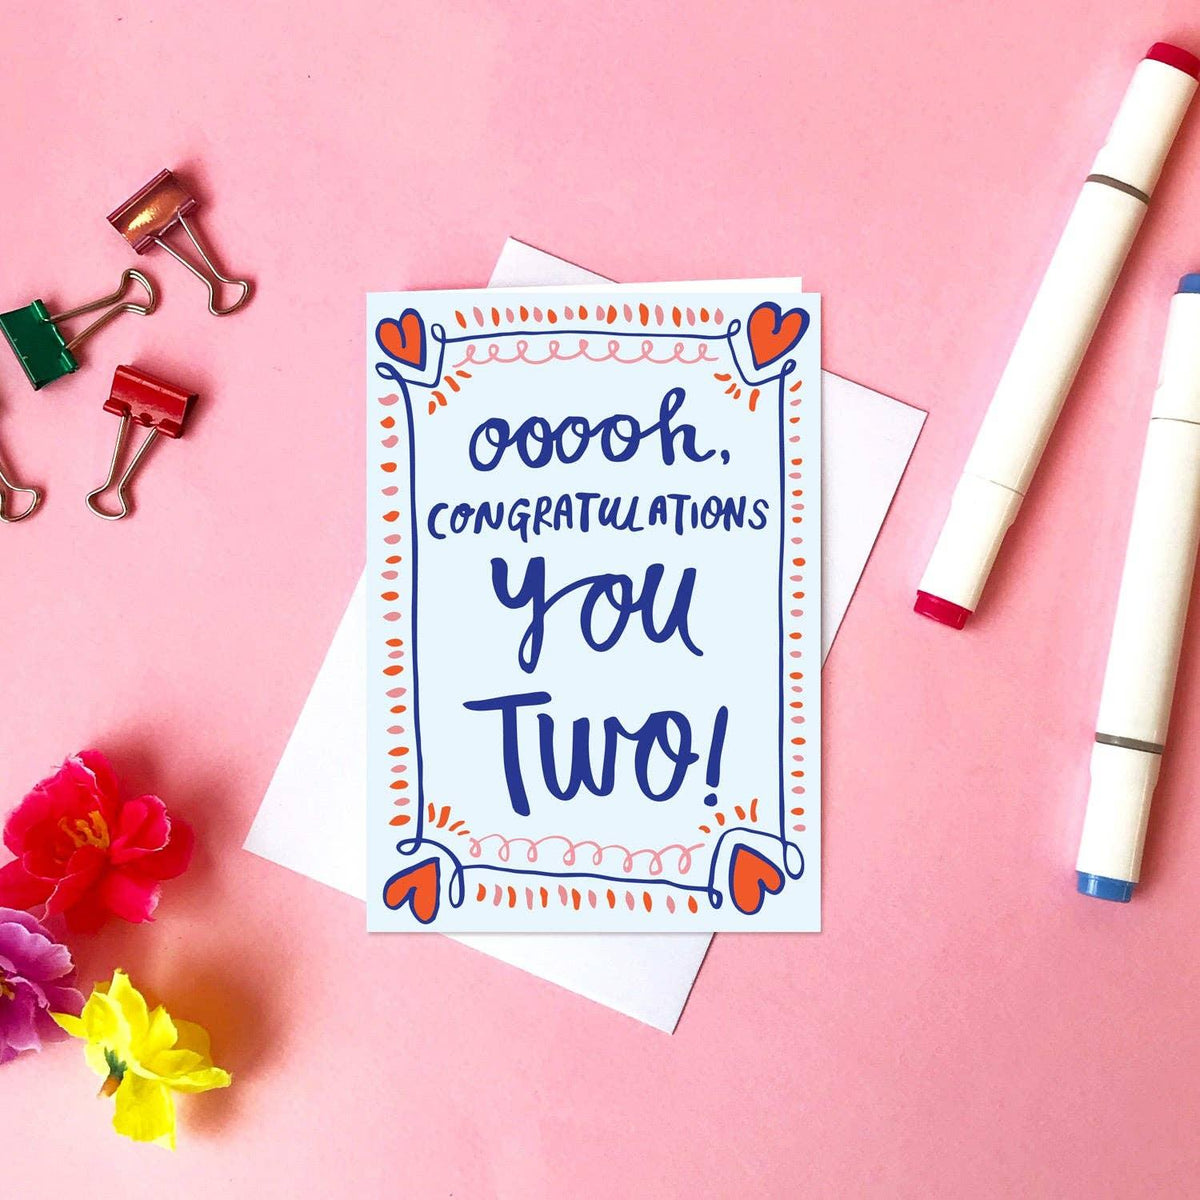 ooooh,
CONGRATULATIONS
you
Two!